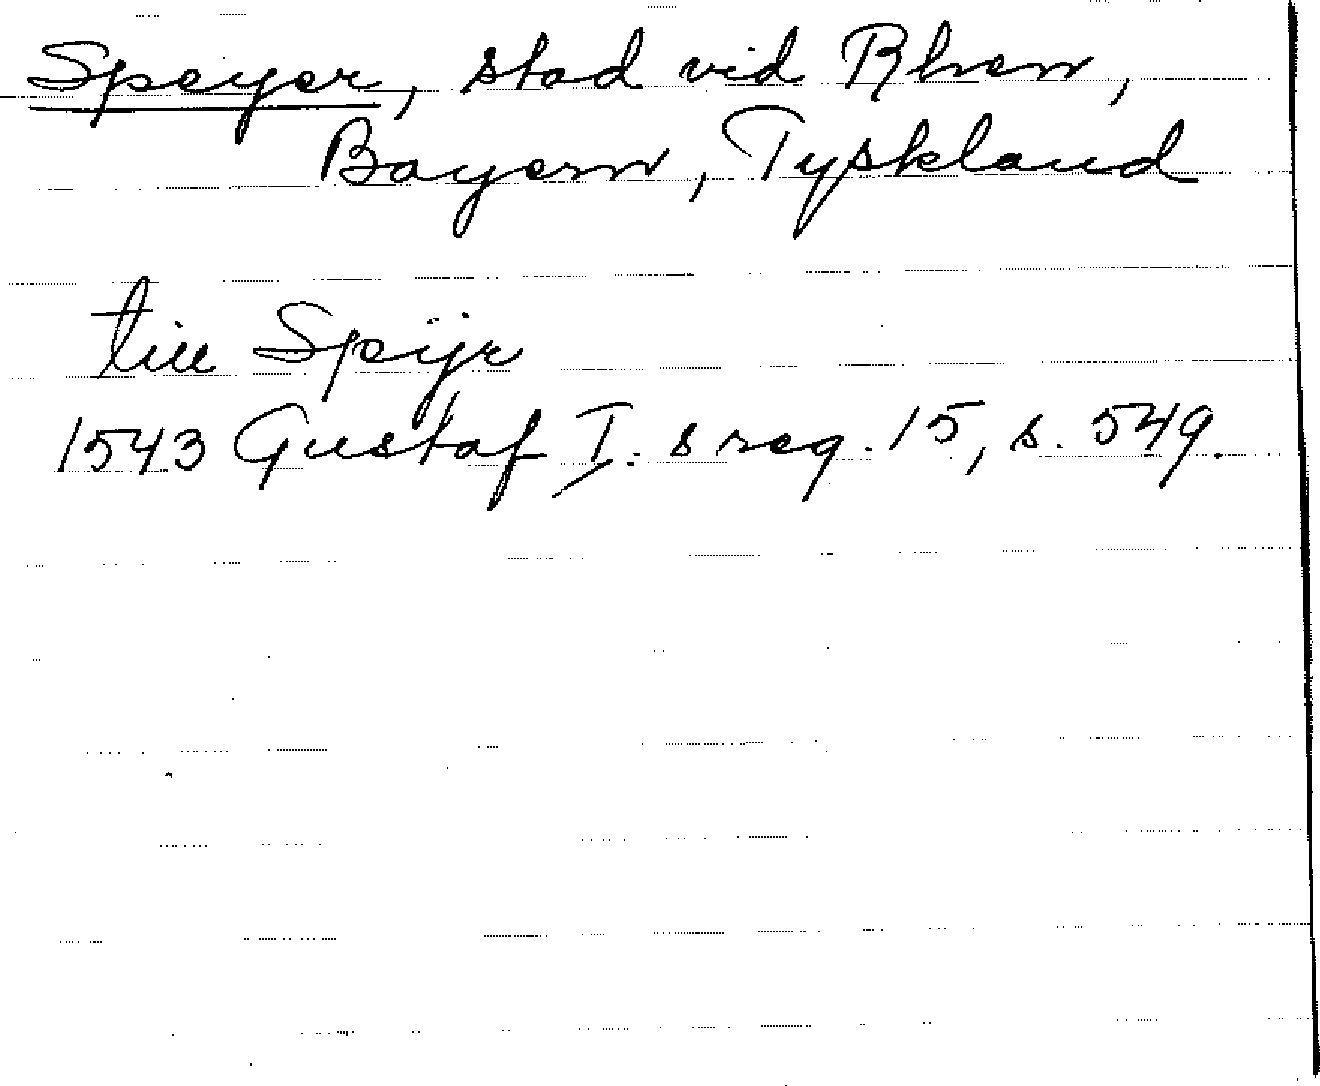 Speyer, stad vid Rhen,
Bayern, Tyskland
till Speijr
1543 Gustaf I. s reg. 15, s. 549.